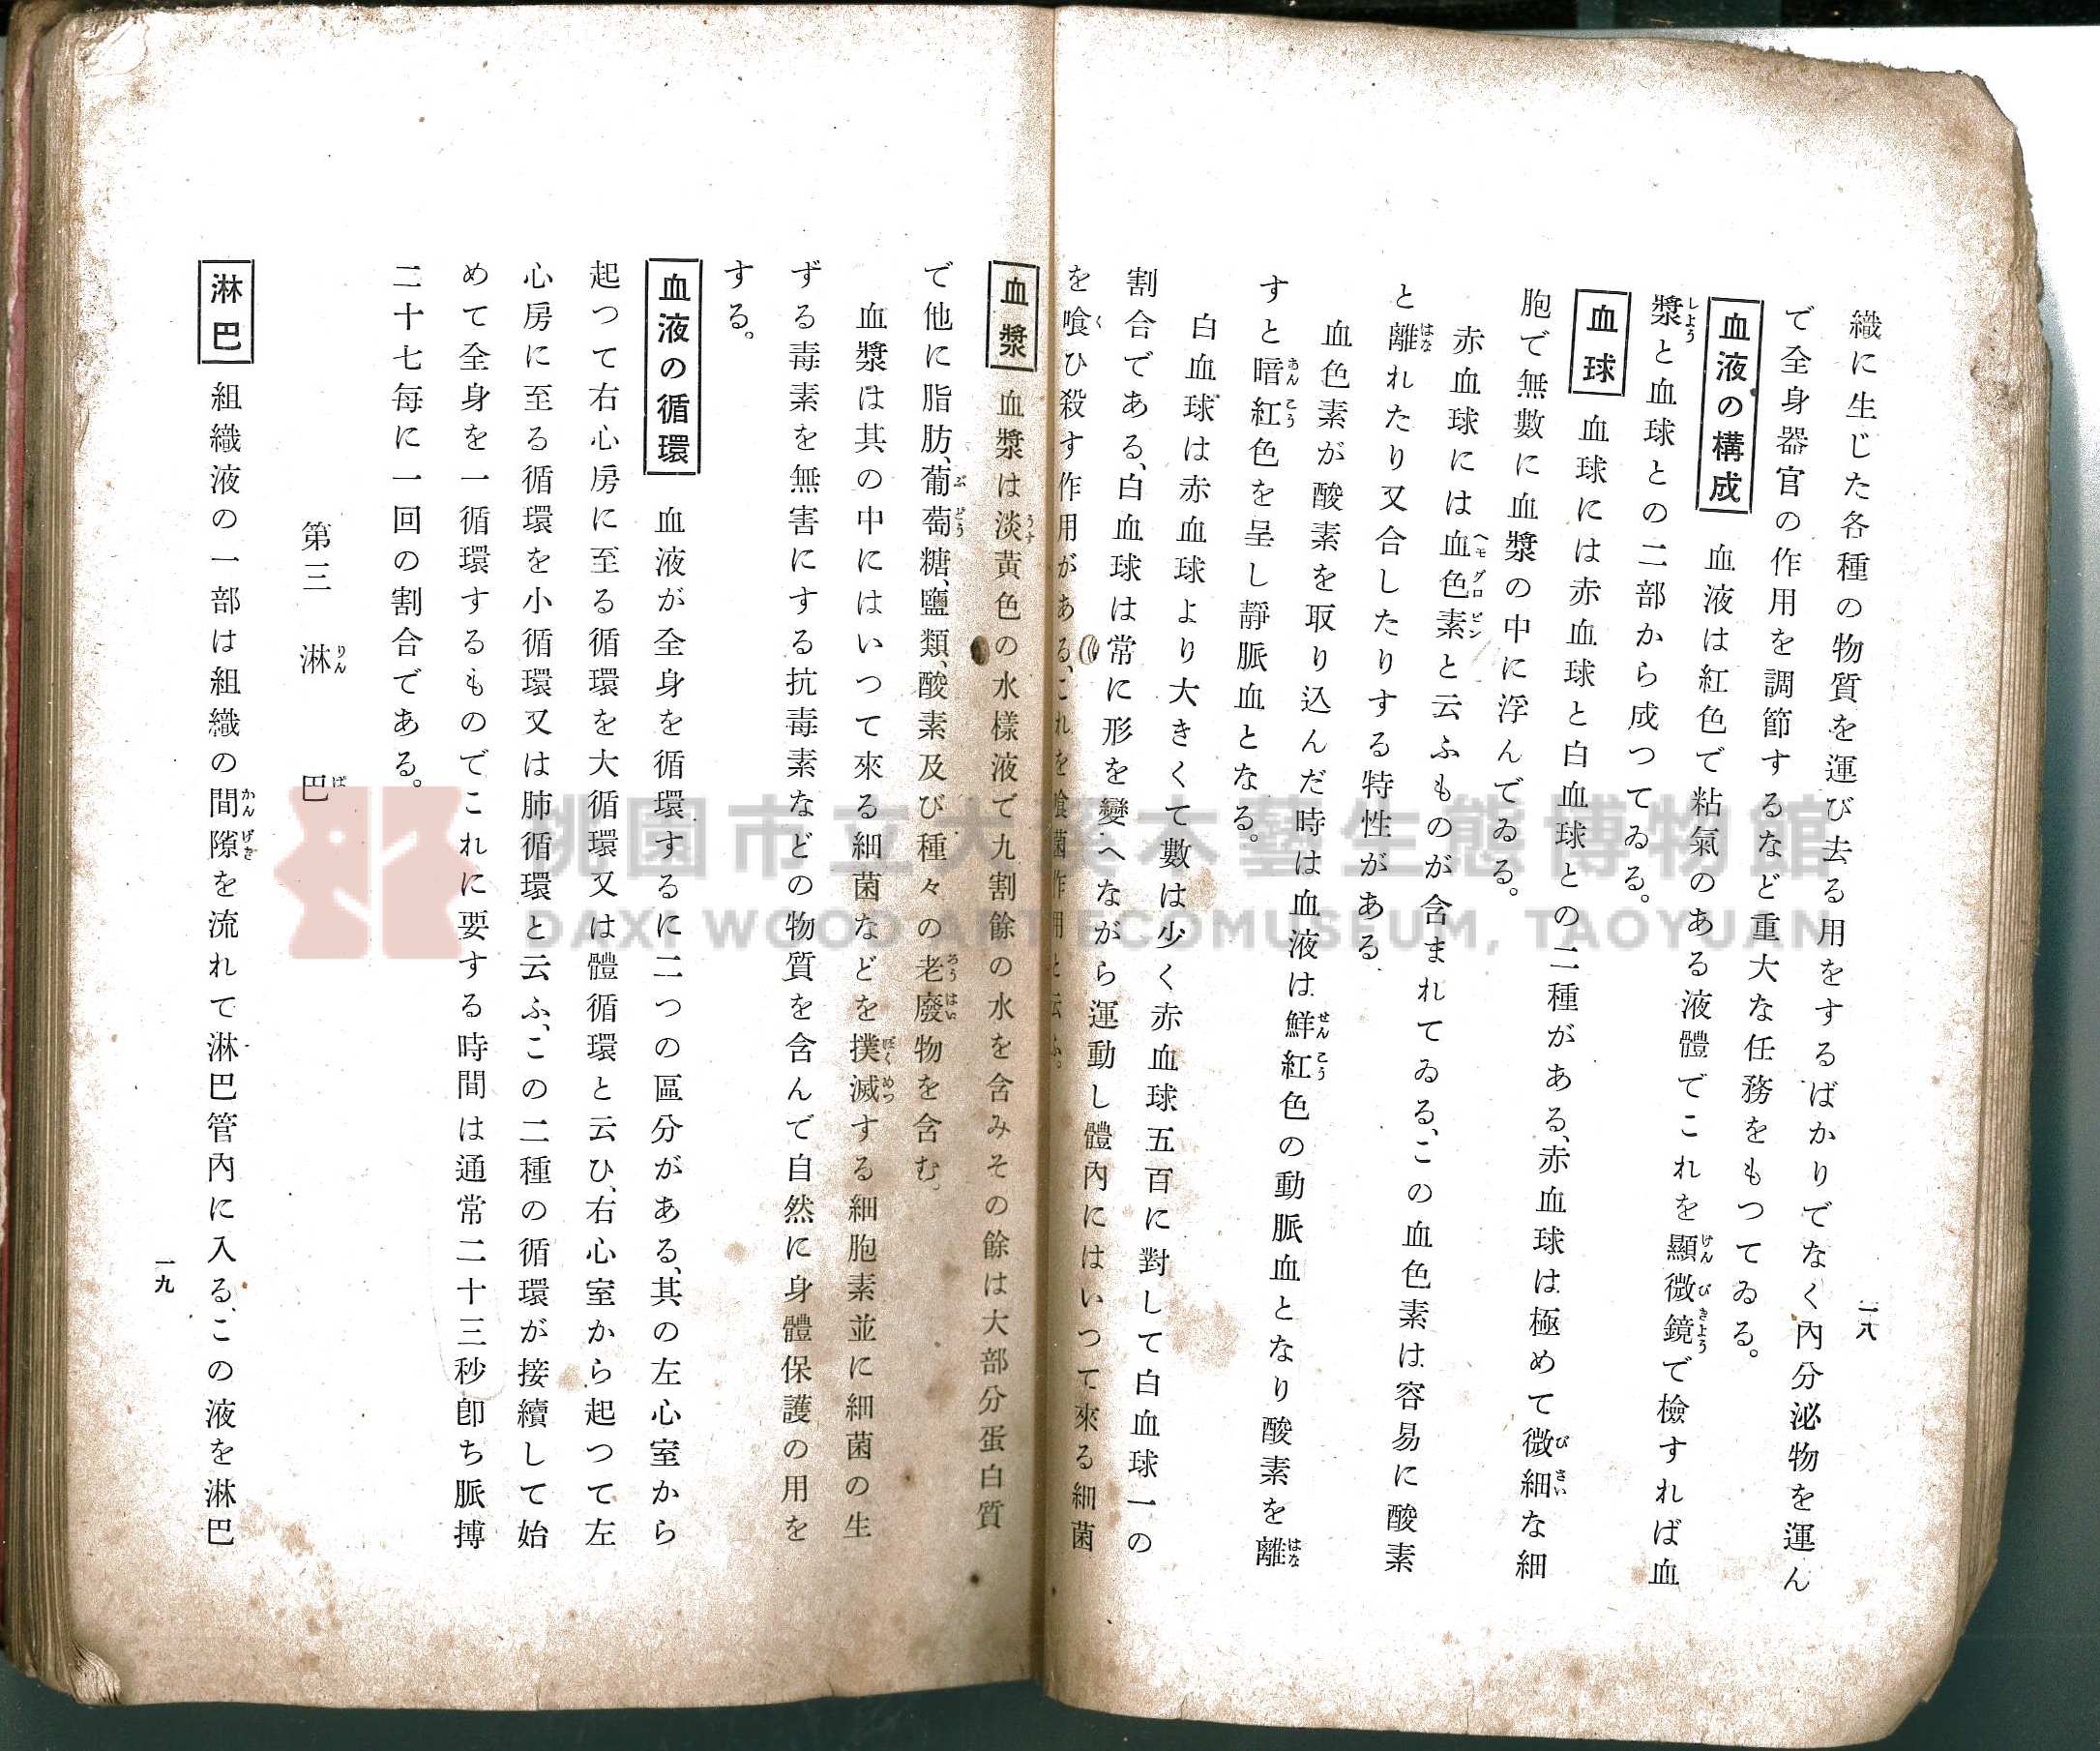 織に生じた各種の物質を運び去る用をするばかりでなく內分泌物を運ん
で全身器官の作用を調節するなど重大な任務をもつてゐる。
血液の構成 血液は紅色で粘氣のある液體でこれを顯微鏡で檢すれば血
漿と血球との二部から成つてゐる。
血球 血球には赤血球と白血球との二種がある、赤血球は極めて微細な細
胞で無數に血漿の中に浮んでゐる。
赤血球には血色素と云ふものが含まれてゐる、この血色素は容易に酸素
と離れたり又合したりする特性がある
血色素が酸素を取り込んだ時は血液は鮮紅色の動脈血となり酸素を離
すと暗紅色を呈し靜脈血となる。
白血球は赤血球より大きくて數は少く赤血球五百に對して白血球一の
割合である、白血球は常に形を變へながら運動し體內にはいつて來る細菌
を喰ひ殺す作用がある、これを喰菌作用と云ふ。
一八
血漿 血漿は淡黃色の水樣液で九割餘の水を含みその餘は大部分蛋白質
で他に脂肪、葡萄糖、鹽類、酸素及び種々の老廢物を含む。
血漿は其の中にはいつて來る細菌などを撲滅する細胞素並に細菌の生
ずる毒素を無害にする抗毒素などの物質を含んで自然に身體保護の用を
する。
血液の循環 血液が全身を循環するに二つの區分がある、其の左心室から
起つて右心房に至る循環を大循環又は體循環と云ひ、右心室から起つて左
心房に至る循環を小循環又は肺循環と云ふ、この二種の循環が接續して始
めて全身を一循環するものでこれに要する時間は通常二十三秒卽ち脈搏
二十七每に一回の割合である。
第三 淋巴
淋巴 組織液の一部は組織の間隙を流れて淋巴管內に入る、この液を淋巴
一九
桃園市立大溪木藝生態博物館
DAXI WOOD ART ECOMUSEUM, TAOYUAN